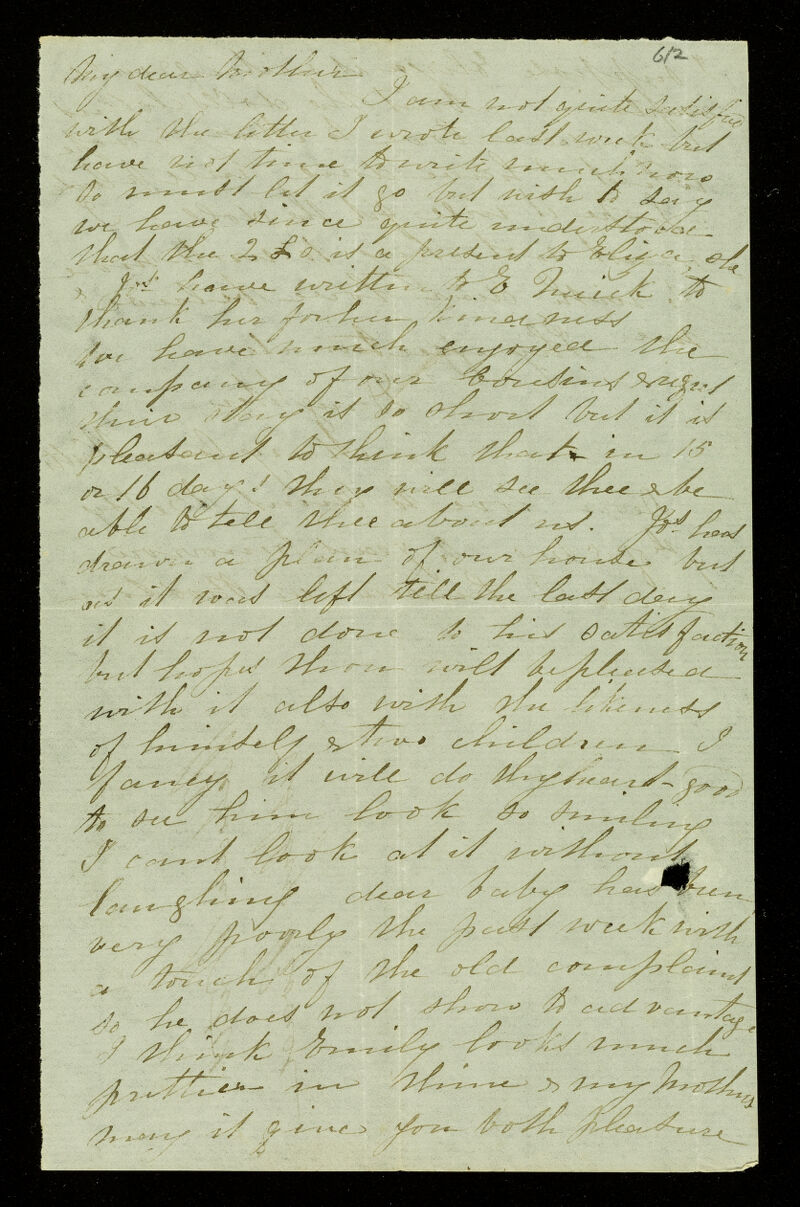 612
My dear Mother
I am not quite satisfied
with the letter I wrote last week but
have not time to write much now
so must let it go but wish to say
we have since quite understood
that the 2 £ is a present to Eliza, she
& Jos have written to E to
thank her for her kindness
We have much enjoyed the
company of our Cousins & regret
their stay is so short but it is
pleasant to think that in 15
or 16 days they will see thee & be
able to tell thee about us. Jos has
drawn a plan of our house but
as it was left till the last day
it is not done to his satisfaction
but hopes thou will be pleased
with it also with the likeness
of himself & two children I
fancy it will do thy heart good
to see him look so smiling
I cant look at it without
laughing dear baby has been
very poorly the past week with
a touch of the old complaint
so he does not show to advantage
I think Emily looks much
prettier in thine & my Mothers
may it give you both pleasure